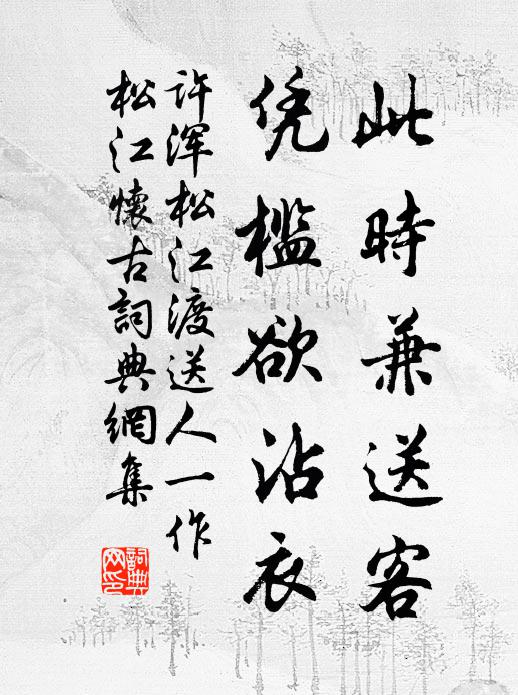 此時兼送客
凭檻欲沾衣
许浑松江渡送人一作
松江懷古詞典網集
詞典网印